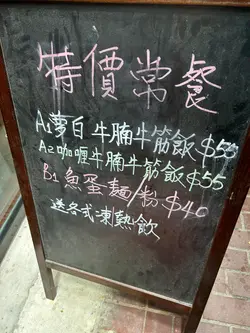 特價常餐
A1蘿白牛腩牛筋飯$55
A2咖喱牛腩牛筋飯$55
B1魚蛋麵/粉$40
送各式凍熱飲